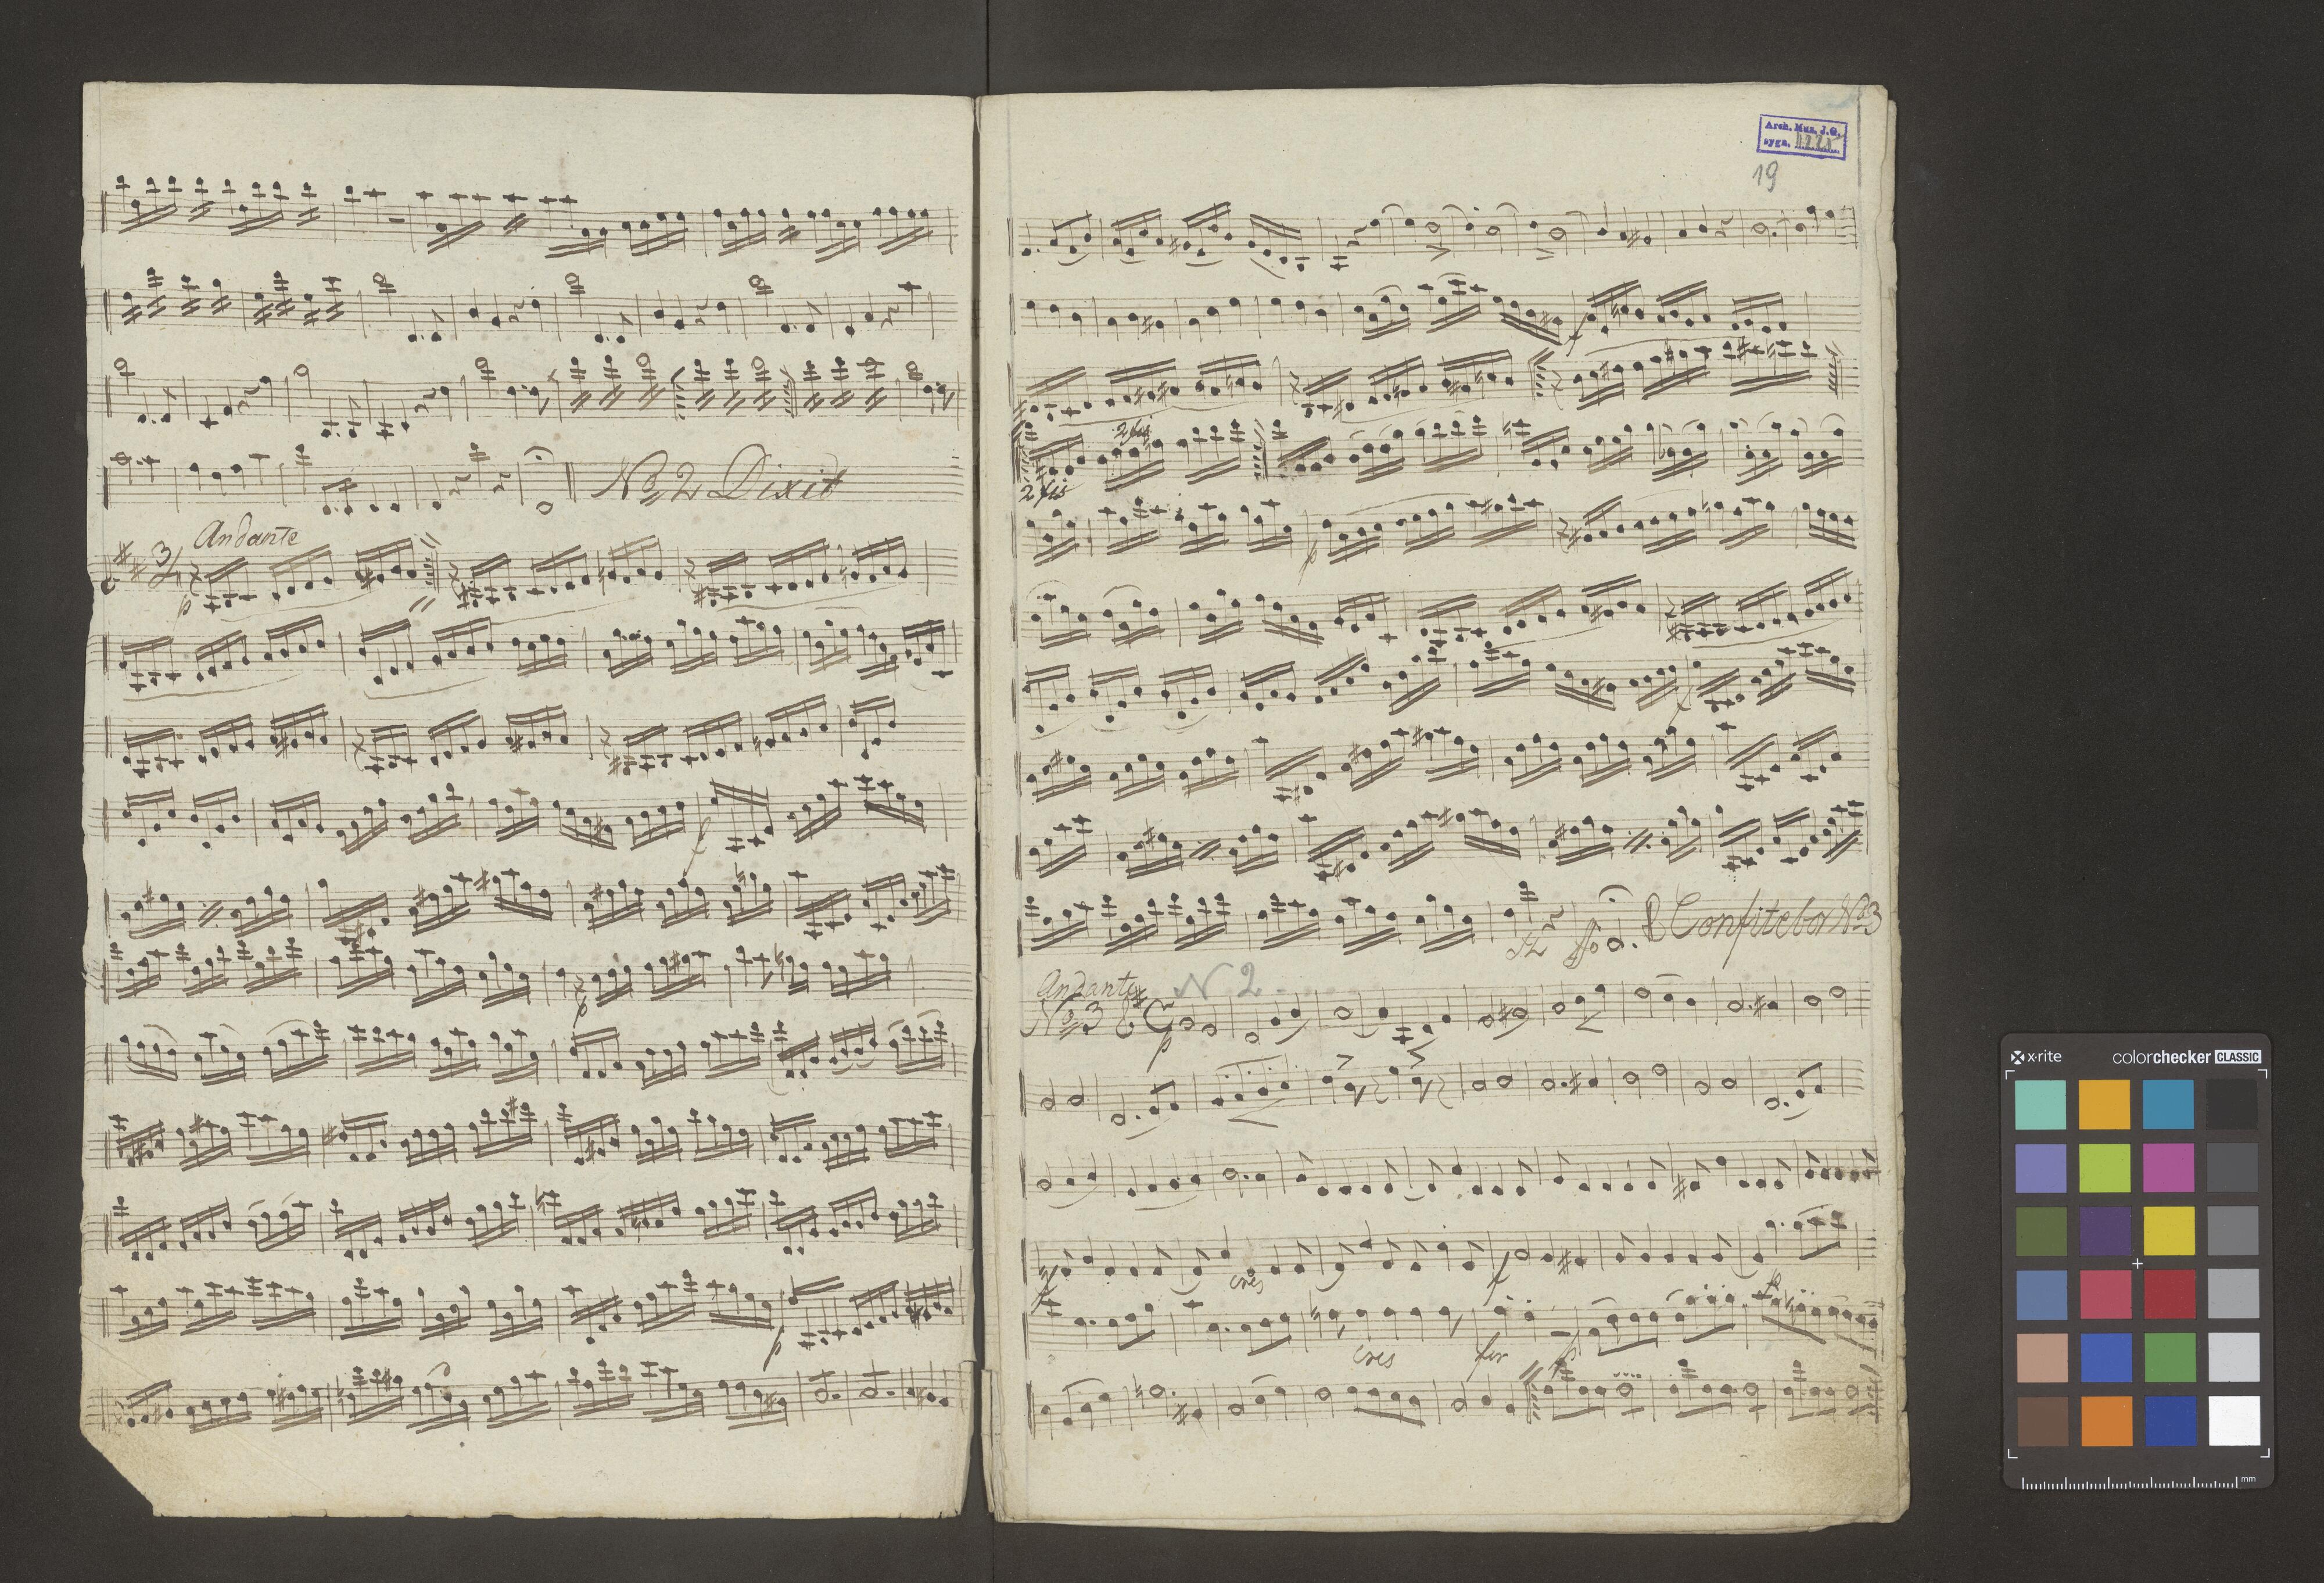 No 2 Dixit
Andante
3/4
p
f
p
p
Arch. Muz. J.G.
sygn.
19
f
2 fis
2 fis
p
f
Confitebor No 3
Andante
N 2
No 3
p
cres
f
p
cres
for
p
x-rite
colorchecker CLASSIC
mm